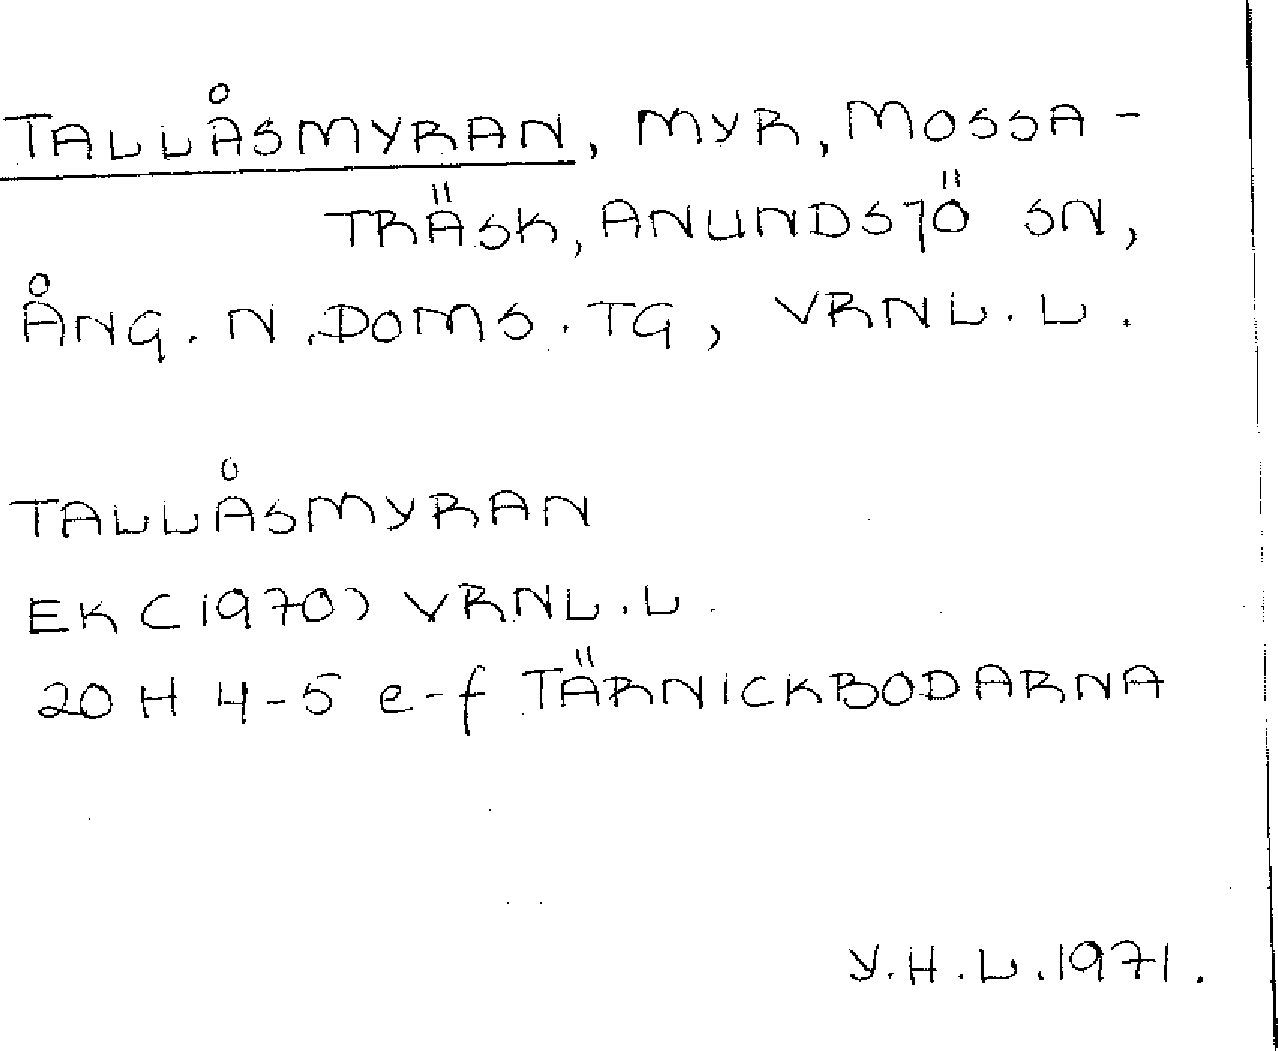 TALLÅSMYRAN, MYR, MOSSA-
TRÄSK, ANUNDSJÖ SN,
ÅNG. N. DOMS. TG, VRNL. L.
TALLÅSMYRAN
EK (1970) VRNL. L.
20 H 4-5 e-f TÄRNICKBODARNA
Y. H. L. 1971.